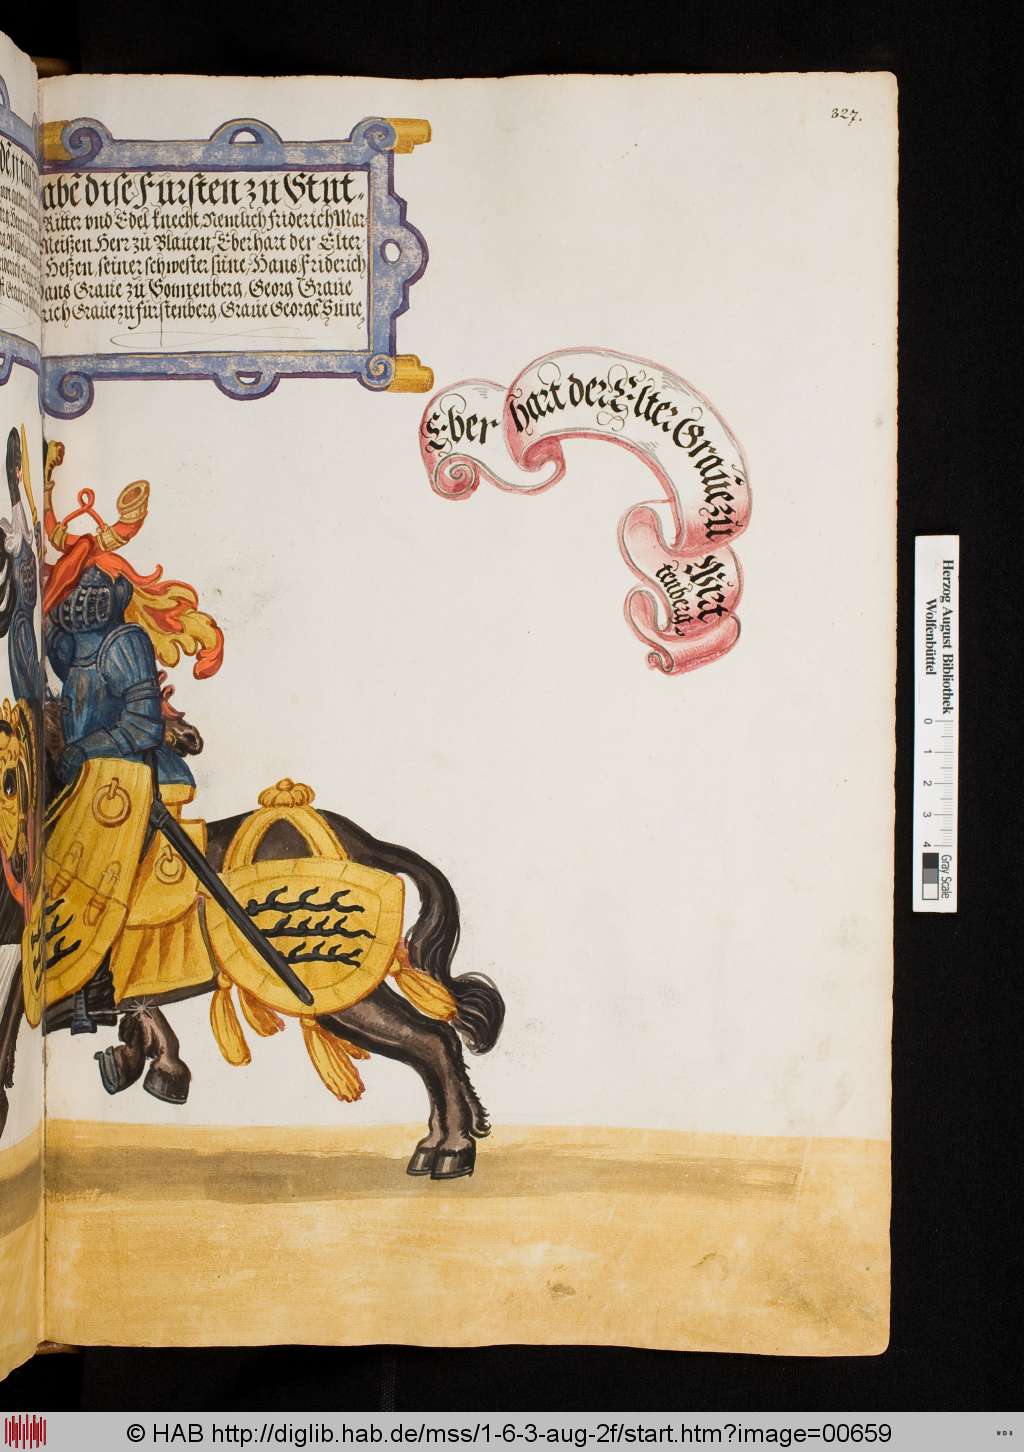 327.
abe̅ dise Fürsten zu Stut-
Ritter vnd Edel knecht Nemlich Friderich Mar-
Meißen Herr zu Blauen, Eberhart der Elter
Heßen, seiner schwester süne, Hans Friderich
Hans Graue zu Sonnenberg, Georg Graue
rich Graue zu fürstenberg, Graue George̅ Süne,
Eberhart der Elter Graue zu Wirt
tenberg,
Herzog August Bibliothek
Wolfenbüttel
0 1 2 3 4
Gray Scale
© HAB http://diglib.hab.de/mss/1-6-3-aug-2f/start.htm?image=00659